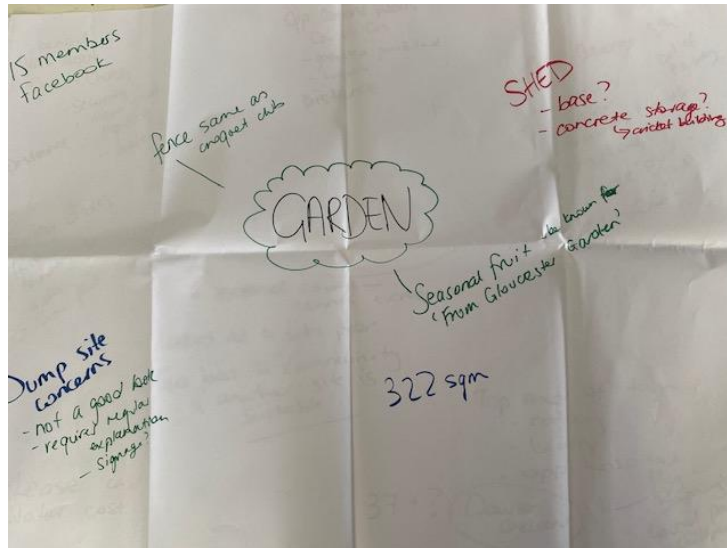 15 members
Facebook
fence same as
croquet club
SHED
- base?
- concrete storage?
↳ cricket building
GARDEN
Seasonal fruit - be known for
'From Gloucester Garden'
Dump site
concerns
- not a good look
- requires regular
explanation
- signage?
322 sqm
37 - ?